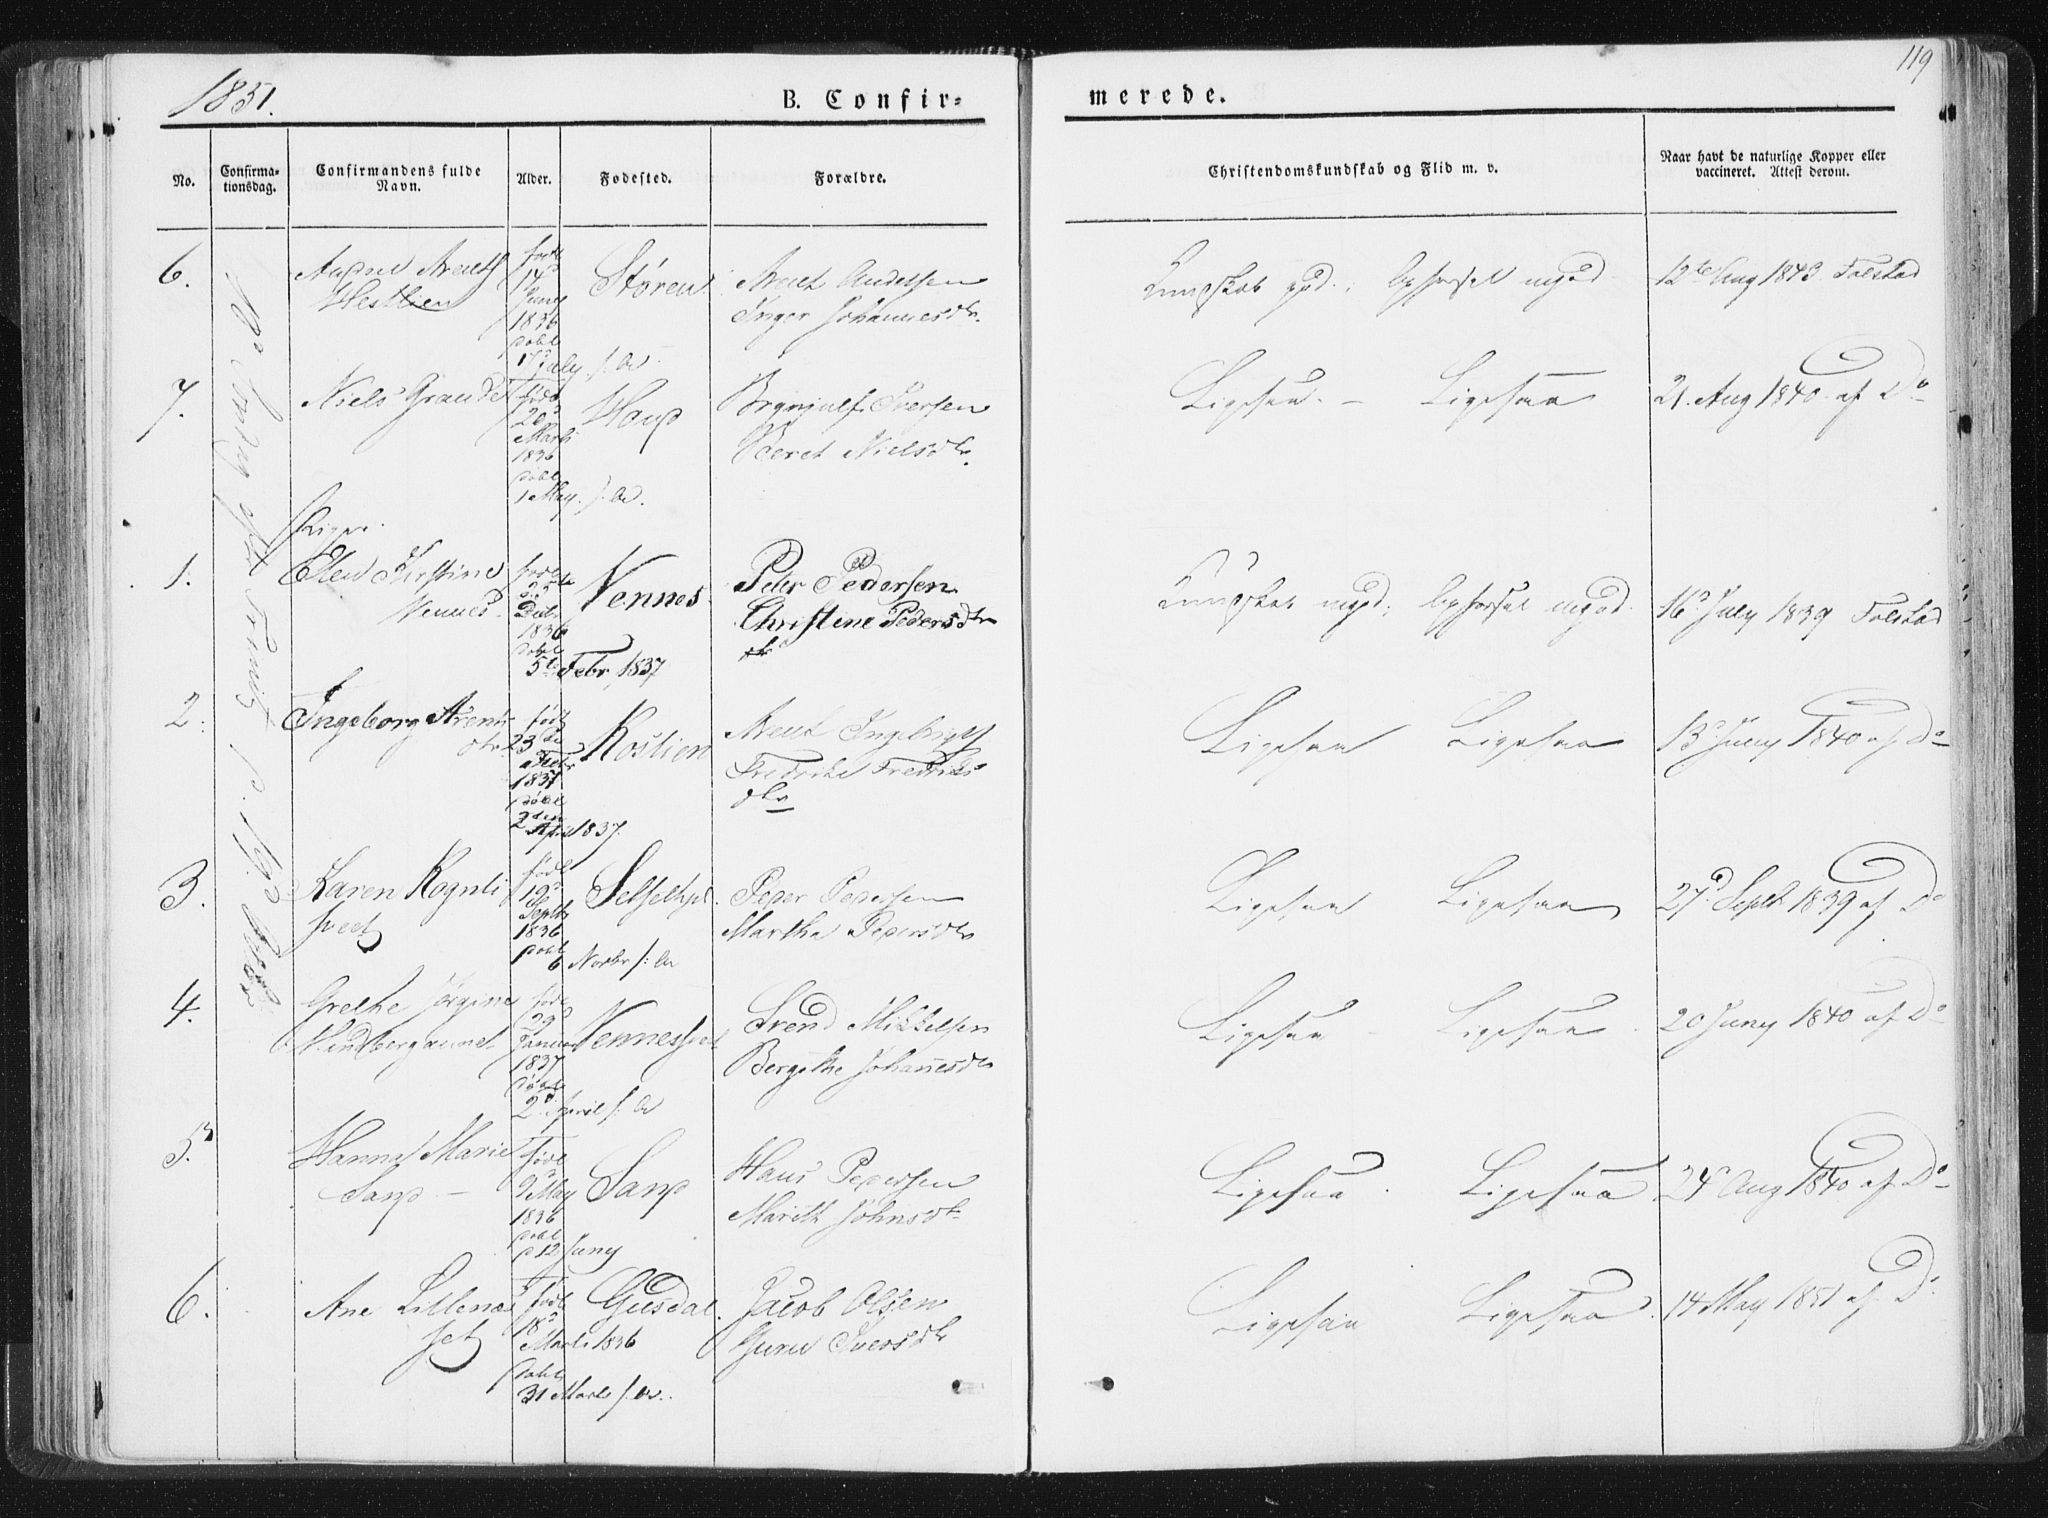 119
1851.
B. Confir-
merede.
No.
Confirma-
tionsdag.
Confirmandens fulde
Navn.
Alder.
Fødested.
Forældre.
Christendomskundskab og Flid m. v.
Naar havt de naturlige Kopper eller
vaccineret. Attest derom.
6.
Westlien
født
14d
Juny
1836
døbt
17d July s. A
Støren
Arent Andersen
Inger Johannesdtr.
Kundskab god. Opførsel mgod
12te Aug 1843 Folstad
7.
Niels Grande
født
20d
Marti
1836
døbt
1 May. s. A.
Haug
Brynjulf Iversen
Beret Nielsdtr.
Ligesaa. – Ligesaa
21. Aug 1840. af Do
Piger.
1.
Ellen Kirstine
Vennes.
født
1836
døbt
5te Febr 1837
Vennes
Peter Pedersen
Christine Pedersdtr
Kundskab mgod; Opførsel mgod.
16d July 1839 Folstad
2.
Ingeborg Arents
dtr.
født
23de
Febr
1837
døbt
2den
April 1837.
Kostien
Arent Ingebrigts
Fredrikke Fredriks
dtr
Ligesaa Ligesaa
13d Juny 1840 af Do
3.
Karen Rognli
sveet
født
19d
Septb
1836
døbt
6 Novbr s: A
Peder Pedersen
Martha Pedersdtr
Ligesaa Ligesaa
27d Septb 1839 af Do
4.
Grethe Jørgine
født
29d
Januar
1837
døbt
2d April s: A
Svend Mikkelsen
Bergithe Johannesdtr
Ligesaa Ligesaa
20 Juny 1840 af Do
5.
Hanna Marie
Sand –
født
9d
May
1836
døbt
d 12 Juny
Sand
Hans Pedersen
Marith Johnsdtr
Ligesaa Ligesaa
24d Aug 1840 af Do
6.
Ane Lillenæs
set
født
18d
Marti 1836
døbt
31 Marts s. A.
Gusdal.
Jacob Olsen
Guru Iversdtr
Ligesaa Ligesaa.
14 May 1851 af Do